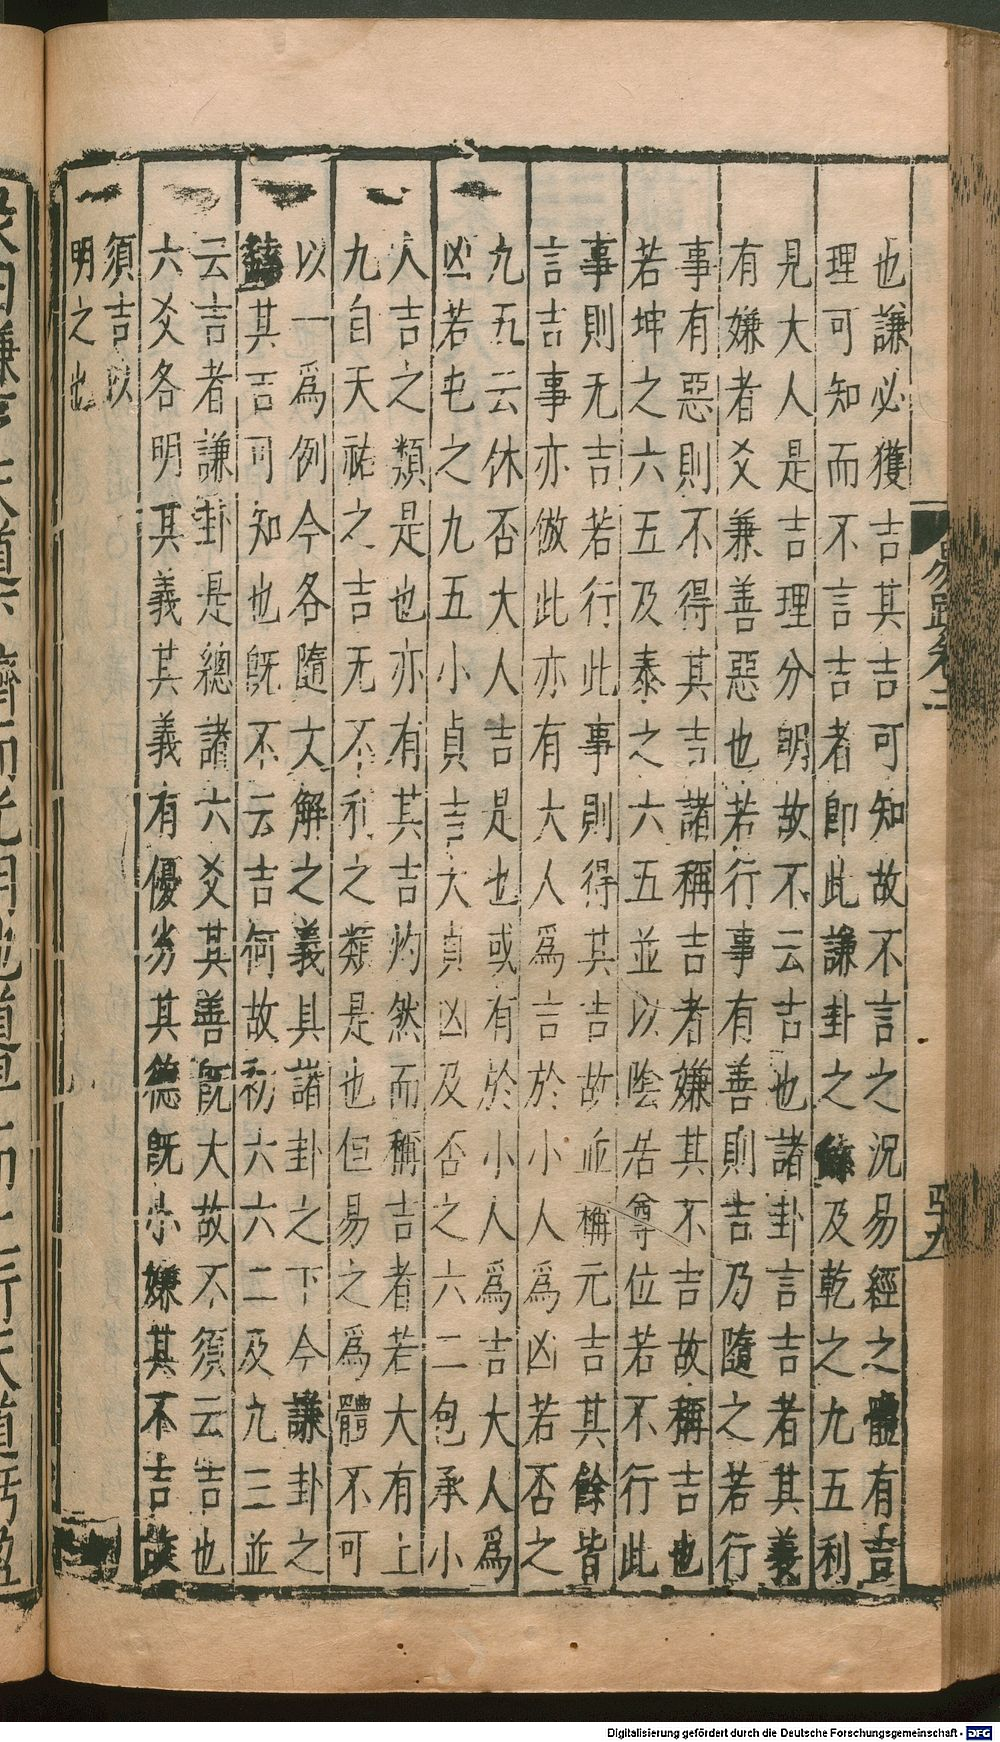 也謙必獲吉其吉可知故不言之況易經之體有吉
理可知而不言吉者即此謙卦之繇及乾之九五利
見大人是吉理分明故不云吉也諸卦言吉者其義
有嫌者爻兼善惡也若行事有善則吉乃隨之若行
事有惡則不得其吉諸稱吉者嫌其不吉故稱吉也
若坤之六五及泰之六五並以陰居尊位若不行此
事則无吉若行此事則得其吉故並稱元吉其餘皆
言吉事亦倣此亦有大人為言於小人為凶若否之
九五云休否大人吉是也或有於小人爲吉大人爲
凶若屯之九五小貞吉大貞凶及否之六二包承小
人吉之類是也亦有其吉灼然而稱吉者若大有上
九自天祐之吉无不利之類是也但易之爲體不可
以一爲例今各隨文解之義具諸卦之下今謙卦之
繇其吉可知也旣不云吉何故初六六二及九三並
云吉者謙卦是總諸六爻其善旣大故不須云吉也
六爻各明其義其義有優劣其德旣小嫌其不吉故
須吉以
明之也
易疏卷二
Digitalisierung gefördert durch die Deutsche Forschungsgemeinschaft - DFG